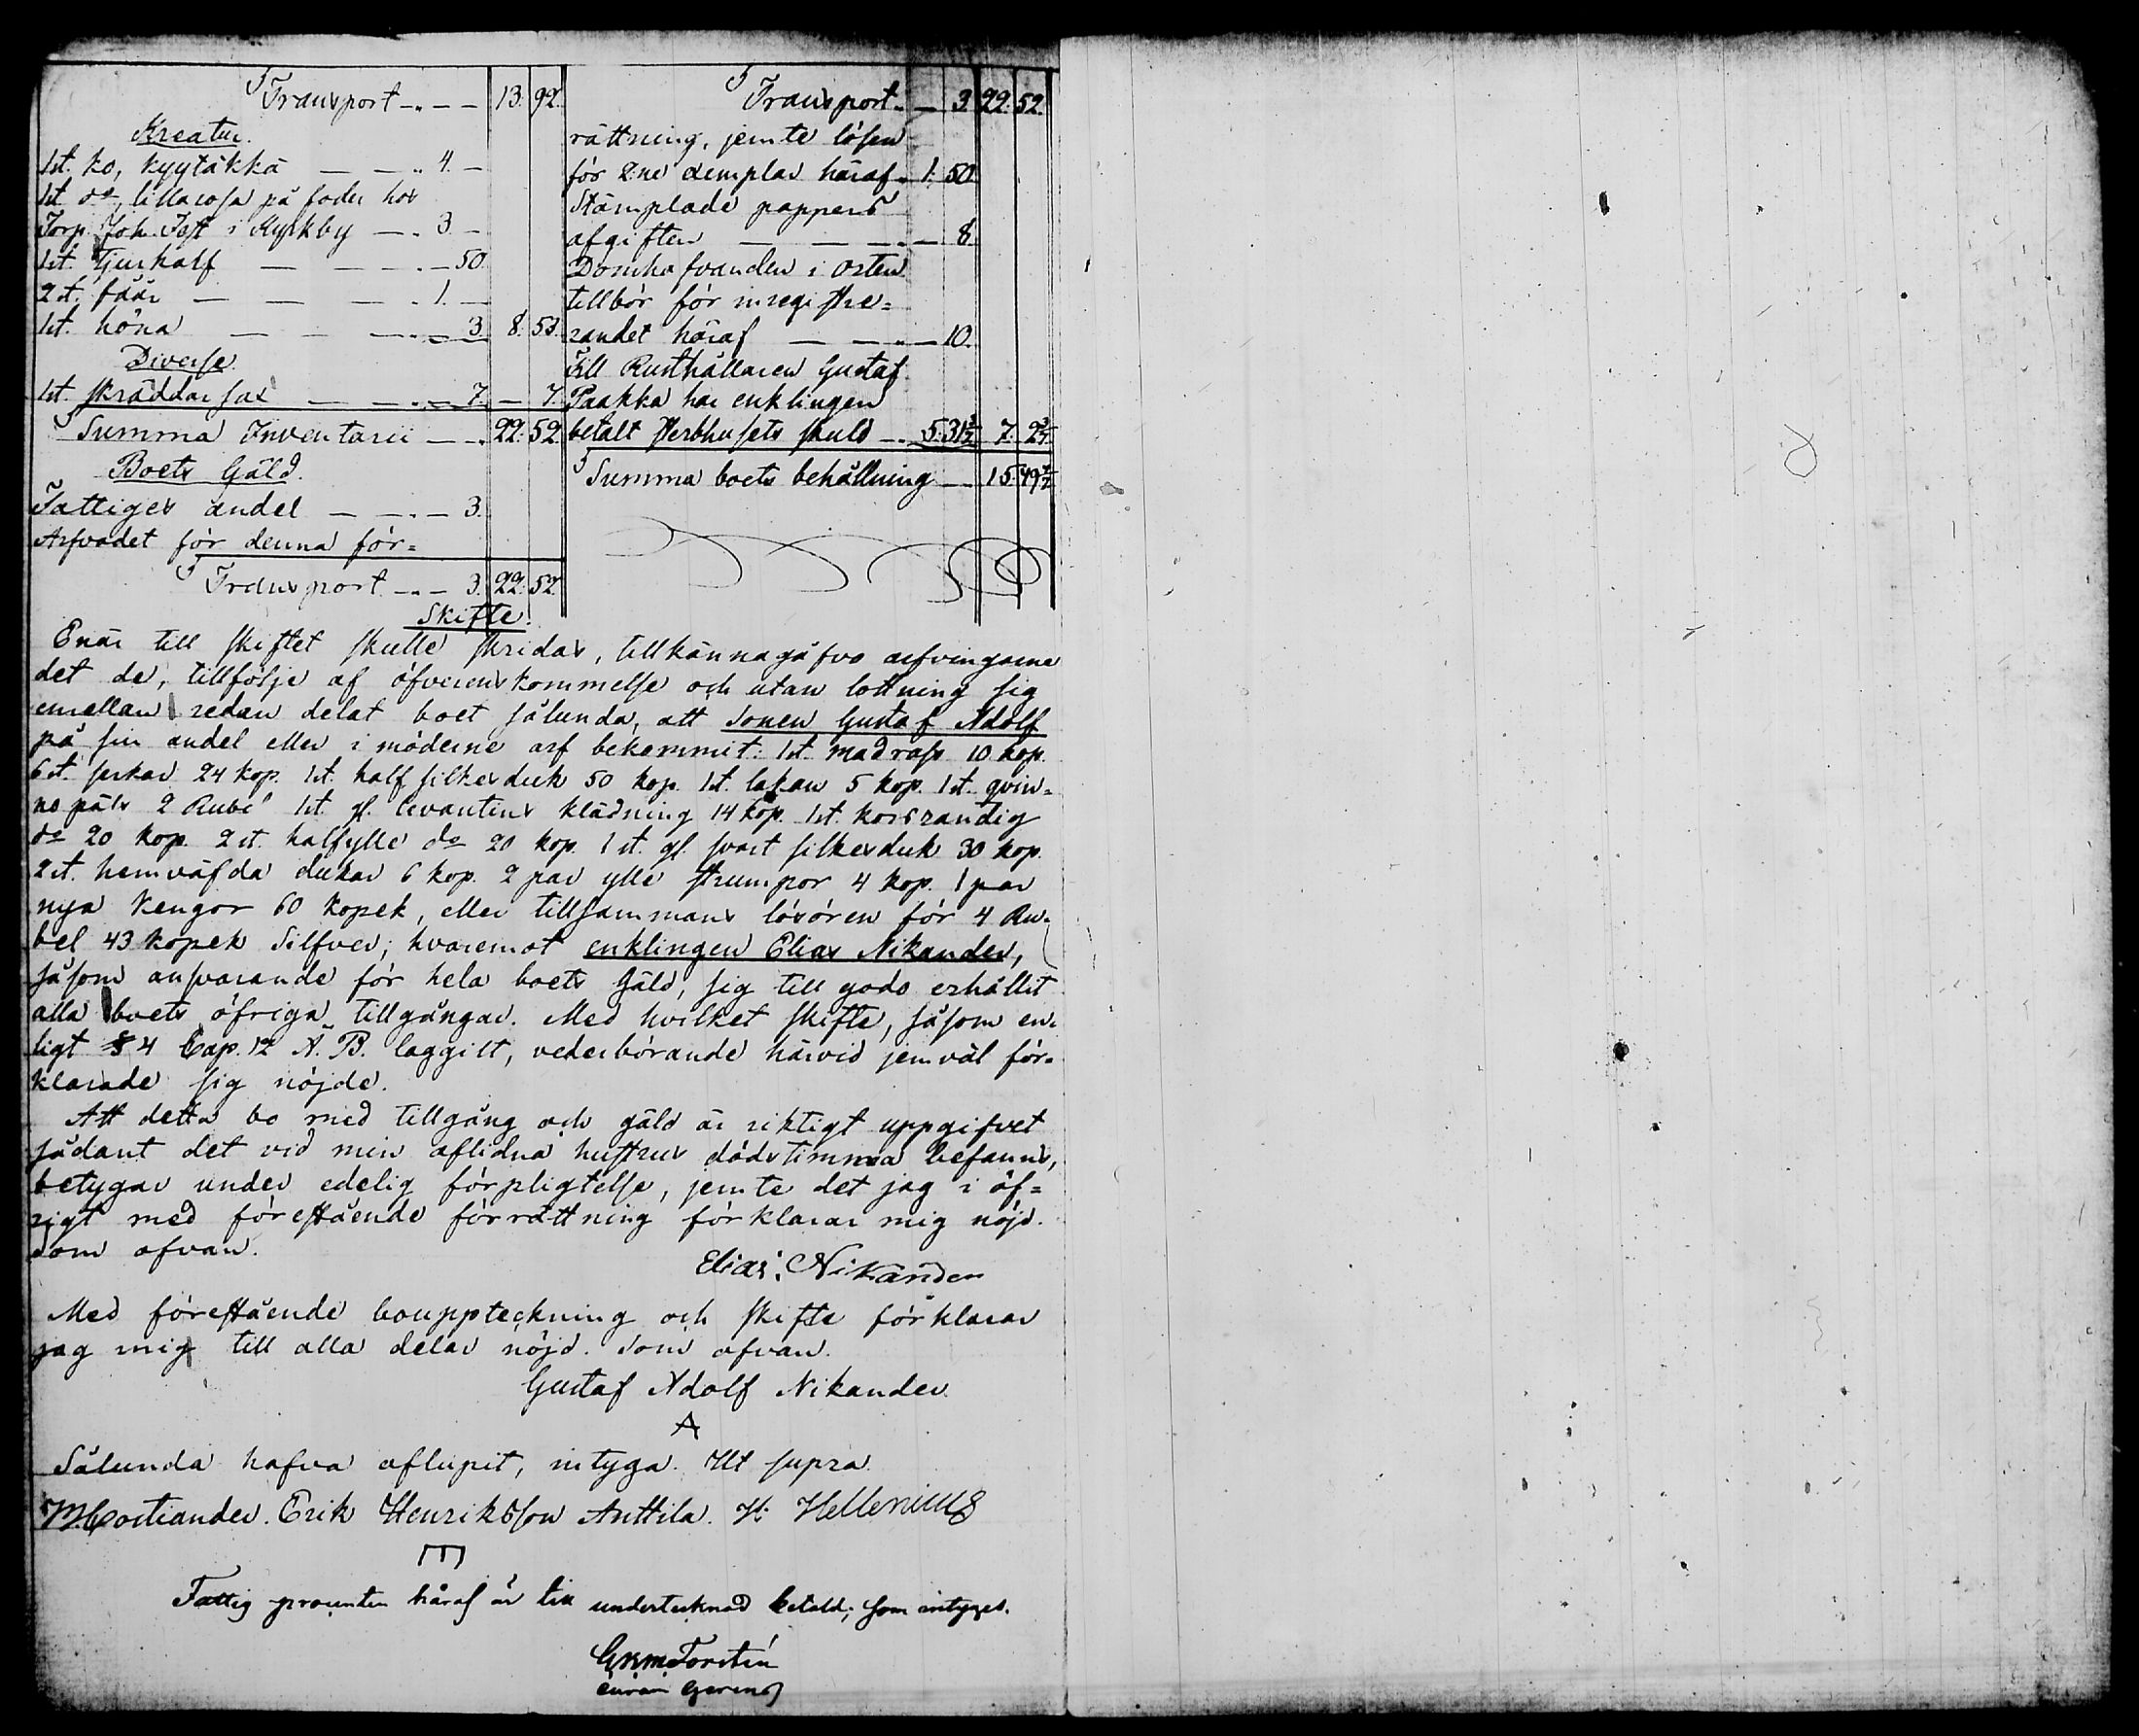 Transport -..- - 13. 92.
Kreatur.
1 st. ko, kyytäkkä — — .. 4. -
1 st. do, lillarosa på foder hos
Torp. Joh. Jost i Kyrkby — .. 3. -
1 st. tjurkalf — — — .. - 50.
2 st. får — — — .. 1. —
1 st. höna — — — .. - 3. 8. 53.
Diverse.
1 st. skräddarsax — — .. - 7. - 7.
Summa Inventarii — .. 22. 52.
Boets Gäld.
Fattiges andel — — .. - 3.
Arfvodet för denna för=
Transport -..- 3. 22. 52.
Transport .. - 3. 22. 52.
rättning, jemte lösen
för 2:ne exemplar häraf .. 1. 50.
Stämplade pappers
afgiften — — — .. - 8.
Domhafvanden i orten
tillbör för inregistre=
randet häraf — — .. - 10.
Till Rusthållaren Gustaf
Paakka har enklingen
betalt sterbhusets skuld .. 5. 31½ 7. 2½
Summa boets behållning — 15. 49½
Skifte.
Enär till skiftet skulle skridas, tillkännagåfvo arfvingarne
det de, tillfölje af öfverenskommelse och utan lottning sig
emellan redan delat boet sålunda, att sonen Gustaf Adolf
på sin andel eller i möderne arf bekommit: 1 st. madrass 10 kop.
6 st. serkar 24 kop. 1 st. half silkesduk 50 kop. 1 st. lakan 5 kop. 1 st. qvin=
no päls 2 Rubl 1 st. gl. levantins klädning 14 kop. 1 st. korsrandig
do 20 kop. 2 st. halfylle do 20 kop. 1 st. gl. svart silkesduk 30 kop.
2 st. hemväfda dukar 6 kop. 2 par ylle strumpor 4 kop. 1 par
nya kengor 60 kopek, eller tillsammans lösören för 4 Ru=
bel 43 kopek Silfver; hvaremot enklingen Elias Nikander,
såsom ansvarande för hela boets Gäld, sig till godo erhållit
alla boets öfriga tillgångar. Med hvilket skifte, såsom en=
ligt § 4 Cap. 12 A. B. laggilt, vederbörande härvid jemväl för=
klarade sig nöjde.
Att detta bo med tillgång och gäld är riktigt uppgifvet
sådant det vid min aflidna hustrus dödstimma befanns,
betygar under edelig förpligtelse, jemte det jag i öf=
rigt med förestående förrättning förklarar mig nöjd.
som ofvan.
Elias. Nikander
Med förestående bouppteckning och skifte förklarar
jag mig till alla delar nöjd. Som ofvan.
Gustaf Adolf Nikander.
A
Sålunda hafva aflupit, intyga. Ut supra.
M. Costiander. Erik Henriksson Anttila. H: Hellenius
Fattig procenten häraf är till undertecknad betald; som intygas.
Forstén